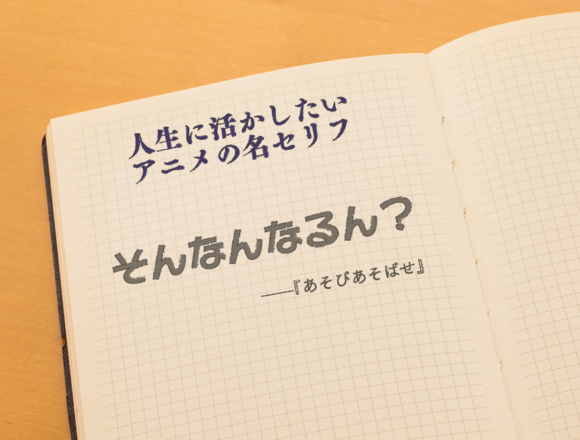 人生に活かしたい
アニメの名セリフ
そんなんなるん？
――『あそびあそばせ』